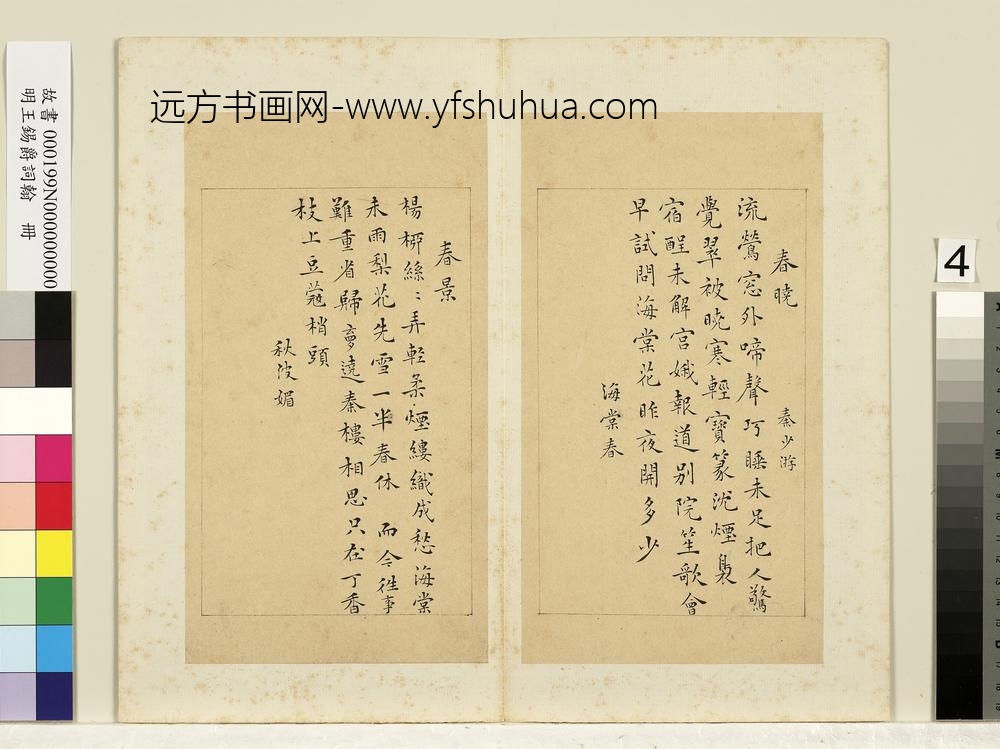 远方书画网-www.yfshuhua.com
春曉
秦少游
流鶯窓外啼聲巧睡未足把人驚
覺翠被曉寒輕寶篆沈煙裊
宿酲未解宮娥報道别院笙歌會
早試問海棠花昨夜開多少
海棠春
春景
楊栁絲〻弄輕柔煙縷織成愁海棠
未雨梨花先雪一半春休 而今徃事
難重省歸夢遶秦樓相思只在丁香
枝上豆蔻梢頭
秋波媚
故書 000199N000000000
明王錫爵詞翰 冊
4